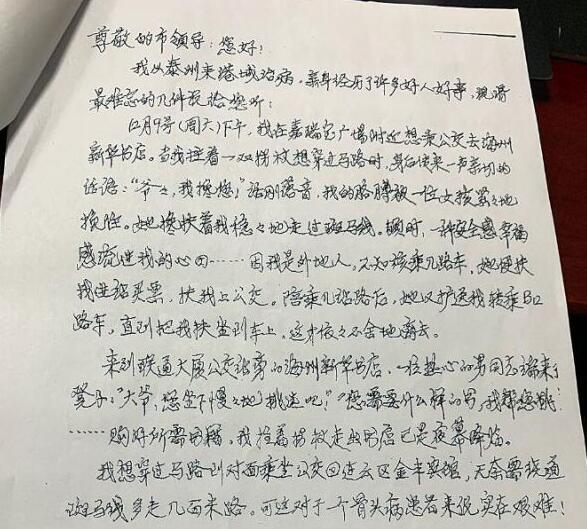 尊敬的市领导：您好！
我从泰州来港城治病，亲身经历了许多好人好事，现将
最难忘的几件说给您听：
12月9号(周六)下午，我在嘉瑞宝广场附近想乘公交去海州
新华书店。当我拄着一双拐杖想穿过马路时，身后传来一声亲切的
话语："爷爷，我搀您，"话刚落音，我的胳膊被一位女孩紧紧地
挽住。她搀扶着我稳稳地走过斑马线。顿时，一种安全感幸福
感流进我的心田……因我是外地人，不知该乘几路车，她便扶
我进站买票，扶我上公交。陪乘几站路后，她又护送我转乘B2
路车，直到把我扶坐到车上，这才依依不舍地离去。
来到联通大厦公交站旁的海州新华书店，一位热心的男同志端来了
凳子："大爷，您坐下慢慢地挑选吧！""您需要什么样的书，我帮您挑！
……购好所需书籍，我拄着拐杖走出书店已是夜幕降临。
我想穿过马路到对面乘坐公交回连云区金丰宾馆，无奈需绕道
斑马线多走几百米路。可这对于一个骨头病患者来说实在艰难！